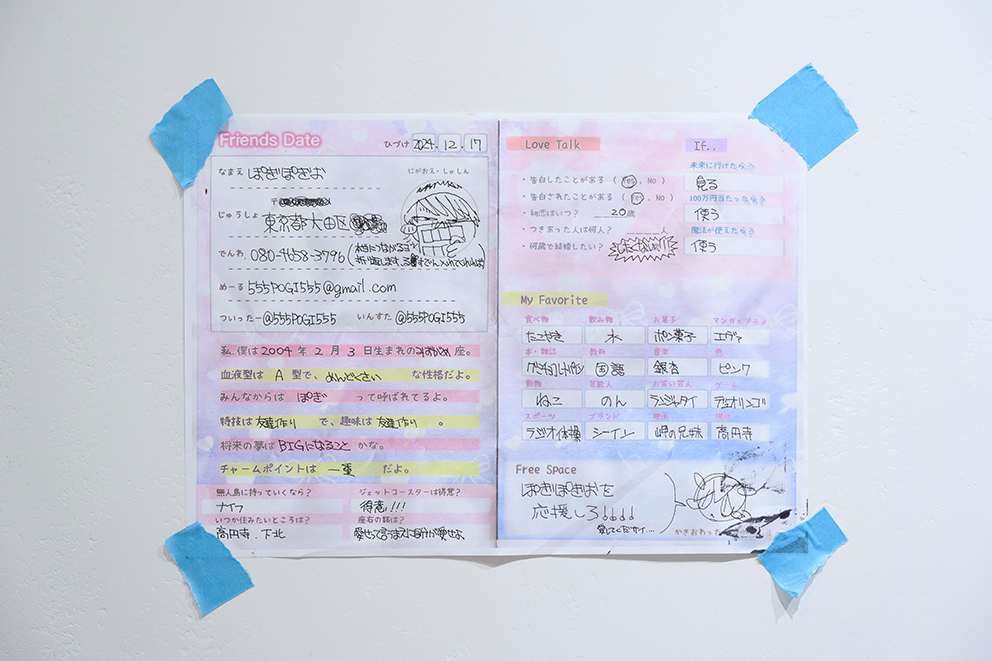 Friends Date
ひづけ 2024. 12. 17
なまえ ぽぎぽぎお
にがおえ・しゃしん
〒
じゅうしょ 東京都大田区
でんわ 080-4658-3796
めーる 555POGI555@gmail.com
ついったー @555POGI555 いんすた @555POGI555
私、僕は2004年 2月 3日生まれのみずがめ座。
血液型は A 型で、めんどくさい な性格だよ。
みんなからは ぽぎ って呼ばれてるよ。
特技は 友達作り で、趣味は 友達作り 。
将来の夢は BIGになること かな。
チャームポイントは 一重 だよ。
無人島に持っていくなら?
ナイフ
ジェットコースターは得意?
得意!!!
いつか住みたいところは?
高円寺、下北
座右の銘は?
愛せって言うまえに自分が愛せよ
Love Talk
・告白したことがある ( Yes, No )
・告白されたことがある ( Yes, No )
・初恋はいつ? 20歳
・つきあった人は何人? 人
・何歳で結婚したい?
If..
未来に行けたら?
見る
100万円当たったら?
使う
魔法が使えたら?
使う
My Favorite
食べ物 飲み物 お菓子 マンガ・アニメ
たこやき 水 ポン菓子 エヴァ
本・雑誌 教科 音楽 色
国語 銀杏 ピンク
動物 芸能人 お笑い芸人 ゲーム
ねこ のん ランジャタイ デュオリンゴ
スポーツ ブランド 映画 場所
ラジオ体操 シーイン 岬の兄妹 高円寺
Free Space
ぽぎぽぎおを
応援しろ!!!!
愛してください…
かきおわった